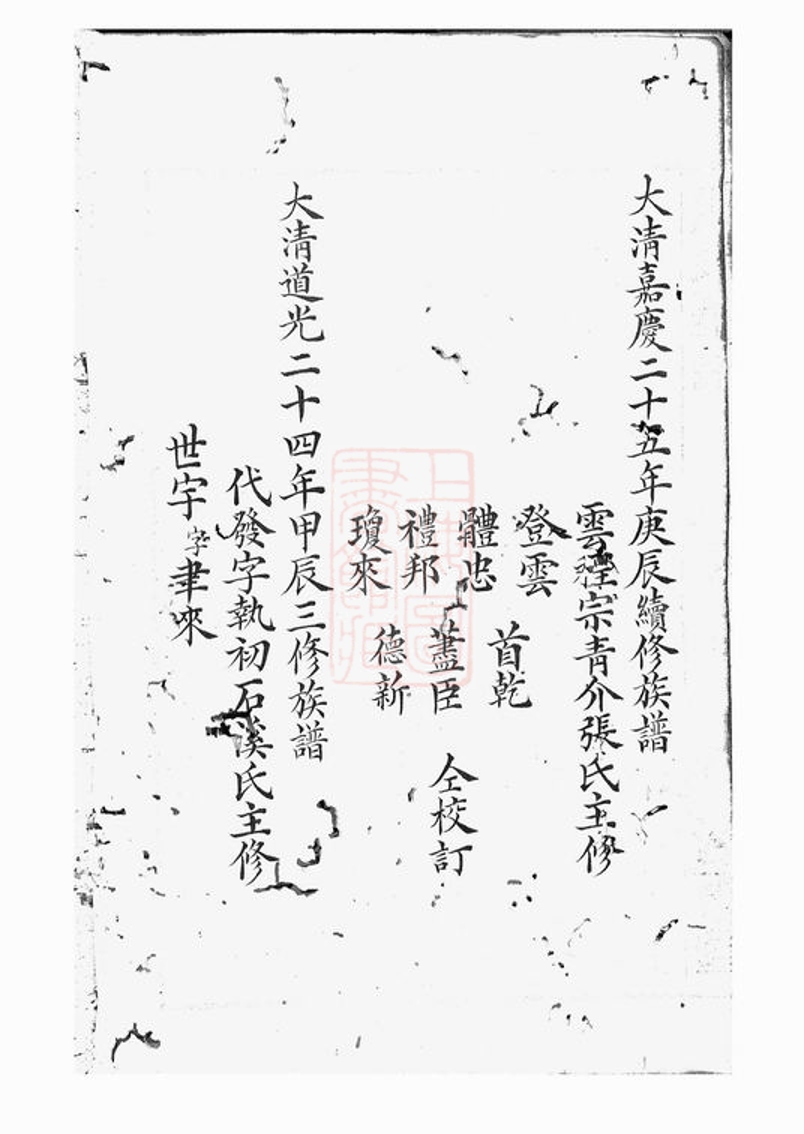 大清嘉慶二十五年庚辰續修族譜
雲程宗青介張氏主修
登雲
首乾
體忠
藎臣
禮邦
德新
瓊來
仝校訂
大清道光二十四年甲辰三修族譜
代發字執初石溪氏主修
世宇字聿來